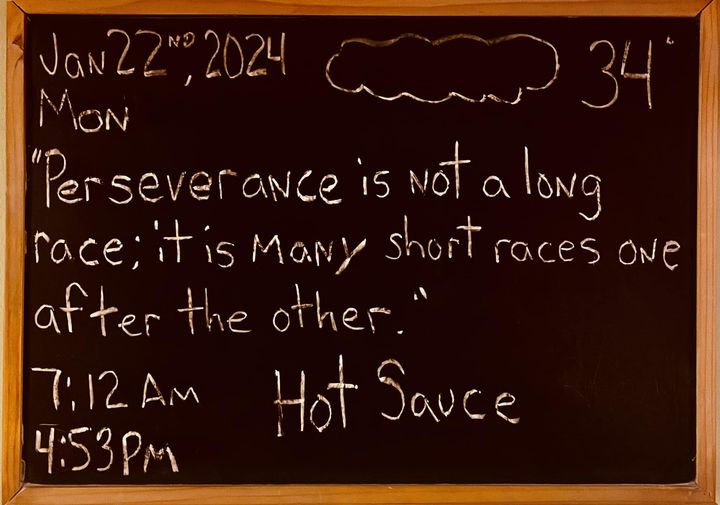 Jan 22ND, 2024 34°
Mon
"Perseverance is not a long
race; it is many short races one
after the other."
7:12 AM Hot Sauce
4:53 PM